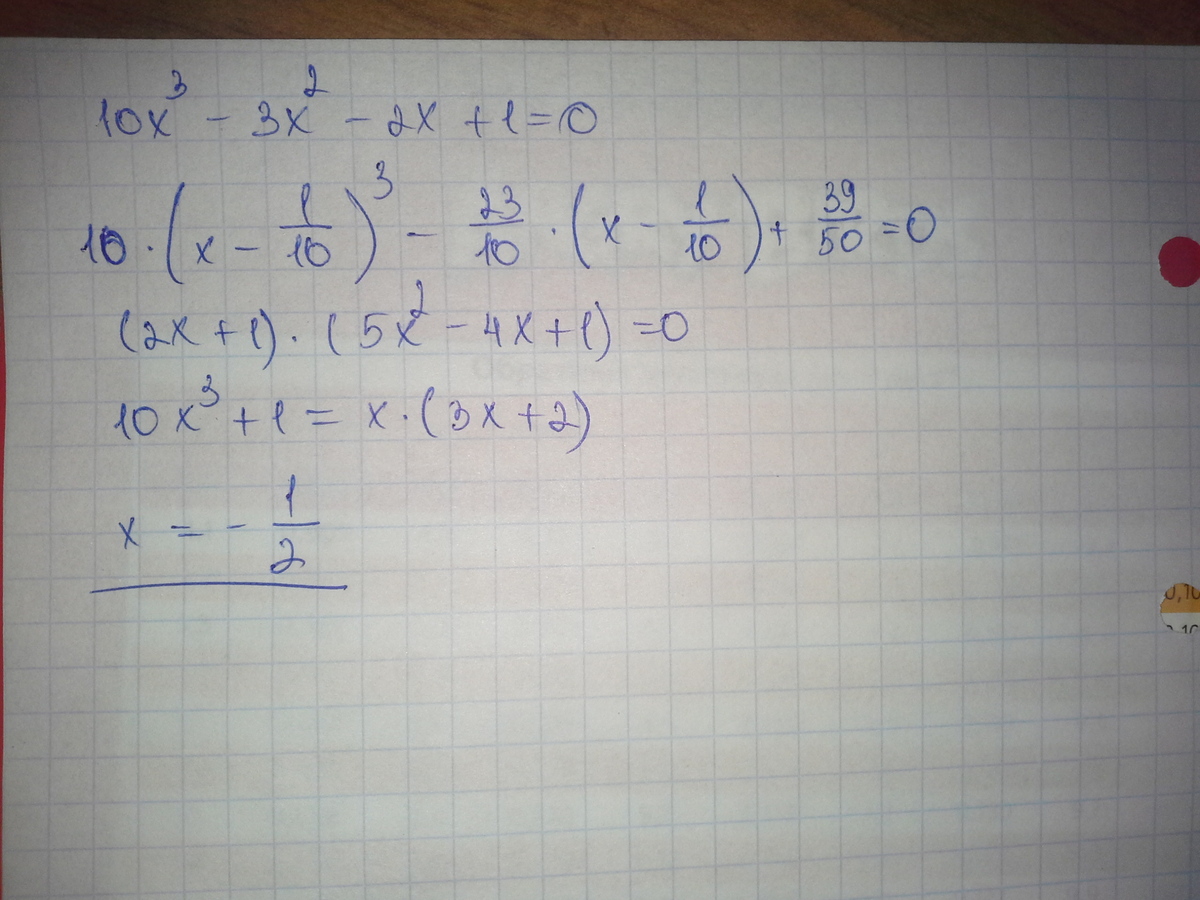 10x³ - 3x² - 2x + 1 = 0
10 · (x - 1/10)³ - 23/10 · (x - 1/10) + 39/50 = 0
(2x + 1) · (5x² - 4x + 1) = 0
10x³ + 1 = x · (3x + 2)
x = - 1/2
0,10